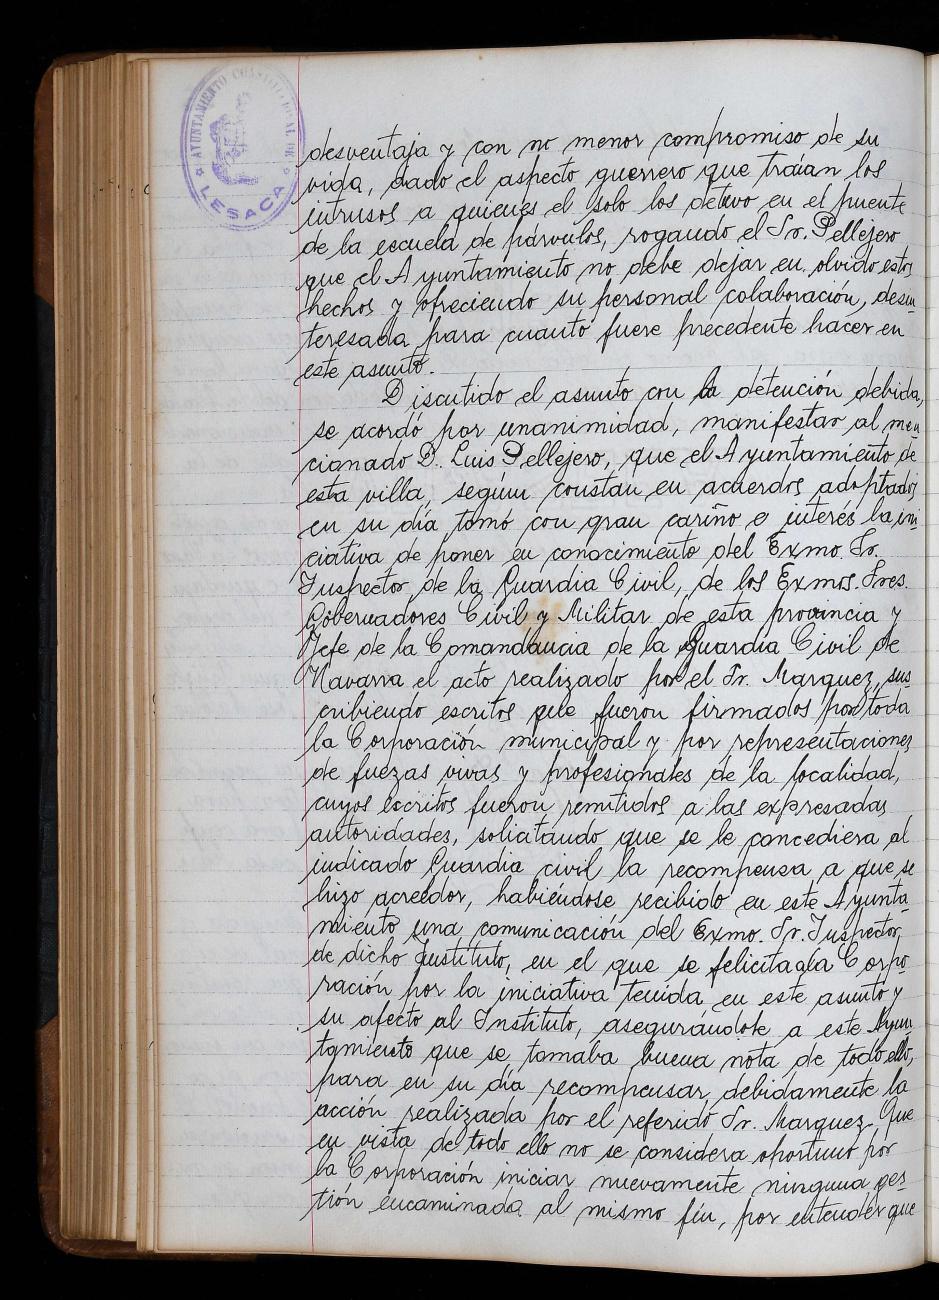 AYUNTAMIENTO CONSTITUCIONAL DE
LESACA
desventaja y con no menor compromiso de su
vida, dado el aspecto guerrero que traían los
intrusos a quienes el solo los detuvo en el puente
de la escuela de párvulos, rogando el Sr. Pellejero
que el Ayuntamiento no debe dejar en olvido estos
hechos y ofreciendo su personal colaboración, desin-
teresada para cuanto fuere precedente hacer en
este asunto.
Discutido el asunto con la detención debida,
se acordó por unanimidad, manifestar al men
cionado D. Luis Pellejero, que el Ayuntamiento de
esta villa, según constan en acuerdos adoptados
en su día tomó con gran cariño e interés la ini-
ciativa de poner en conocimiento del Exmo. Sr.
Inspector de la Guardia Civil, de los Exmos. Sres.
Gobernadores Civil y Militar de esta provincia y
Jefe de la Comandancia de la Guardia Civil de
Navarra el acto realizado por el Sr. Marquez, sus
cribiendo escritos que fueron firmados por toda
la Corporación municipal y por representaciones
de fuezas vivas y profesionales de la localidad,
cuyos escritos fueron remitidos a las expresadas
autoridades, solicitando que se le concediera al
indicado Guardia civil la recompensa a que se
hizo acreedor, habiéndose recibido en este Ayunta-
miento una comunicación del Exmo. Sr. Inspector
de dicho Instituto, en el que se felicita a la Corpo-
ración por la iniciativa tenida en este asunto y
su afecto al Instituto, asegurándole a este Ayun
tamiento que se tomaba buena nota de todo ello,
para en su día recompensar debidamente la
acción realizada por el referido Sr. Marquez. Que
en vista de todo ello no se considera oportuno por
la Corporación iniciar nuevamente ninguna ges-
tión encaminada al mismo fin, por entender que